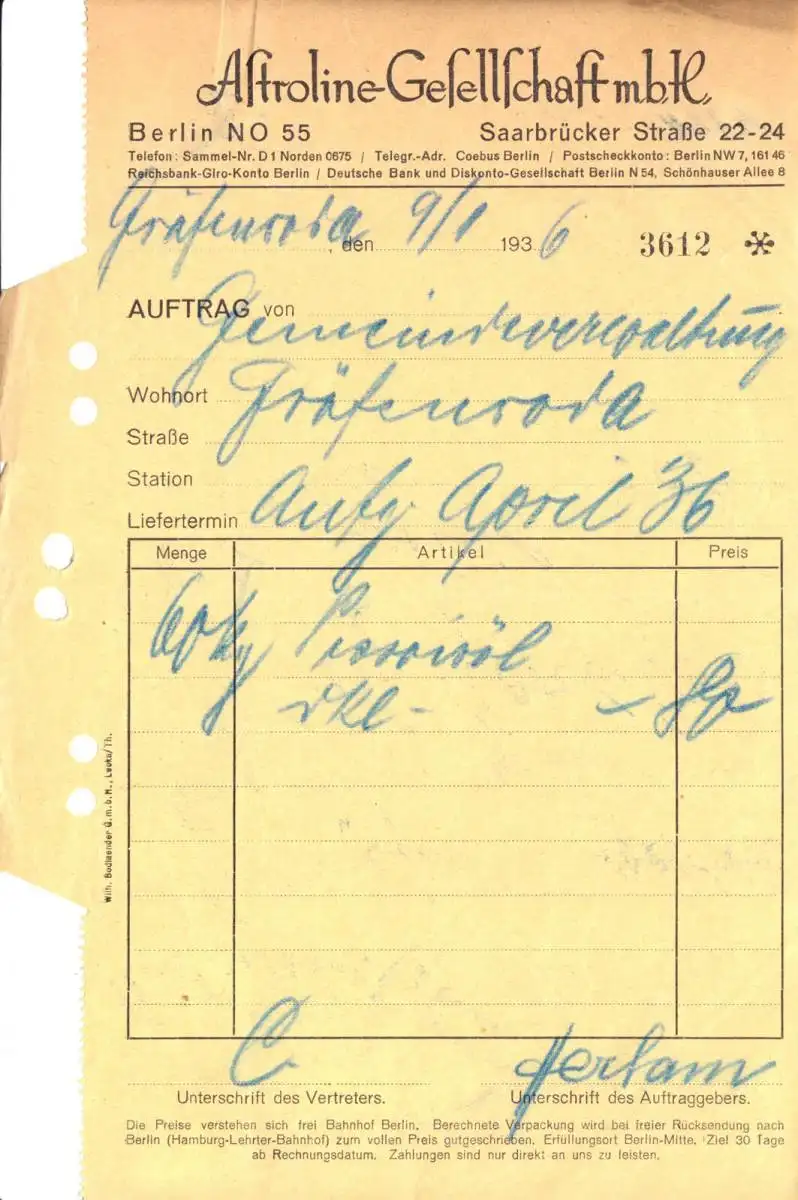 Astroline-Gesellschaft m.b.H.
Berlin NO 55 Saarbrücker Straße 22-24
Telefon: Sammel-Nr. D 1 Norden 0675 / Telegr.-Adr. Coebus Berlin / Postscheckkonto: Berlin NW 7, 161 46
Reichsbank-Giro-Konto Berlin / Deutsche Bank und Diskonto-Gesellschaft Berlin N 54, Schönhauser Allee 8
Gräfenroda, den 9/1 1936 3612
AUFTRAG von Gemeindeverwaltung
Wohnort Gräfenroda
Straße
Station
Liefertermin Anfg. April 36
Menge Artikel Preis
60 kg
dkl -
Unterschrift des Vertreters. Unterschrift des Auftraggebers.
Die Preise verstehen sich frei Bahnhof Berlin. Berechnete Verpackung wird bei freier Rücksendung nach
Berlin (Hamburg-Lehrter-Bahnhof) zum vollen Preis gutgeschrieben. Erfüllungsort Berlin-Mitte. Ziel 30 Tage
ab Rechnungsdatum. Zahlungen sind nur direkt an uns zu leisten.